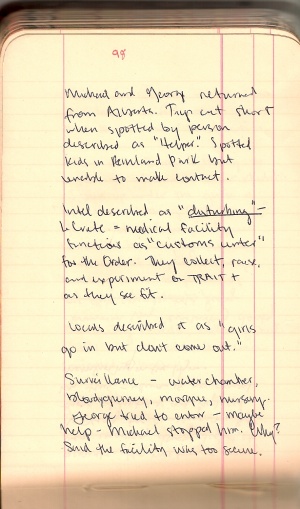 98
Michael and George returned
from Alberta. Trip cut short
when spotted by person
described as "Helper." Spotted
kids in Reinland Park but
unable to make contact.
Intel described as "disturbing" -
Crate = medical facility
functions as "customs center"
for the Order. They collect, race,
and experiment on TRAIT +
as they see fit.
Locals described it as "girls
go in but don't come out."
Surveillance - water chamber,
bloody gurney, morgue, nursery.
George tried to enter - maybe
help - Michael stopped him. Why?
Said the facility was too secure.